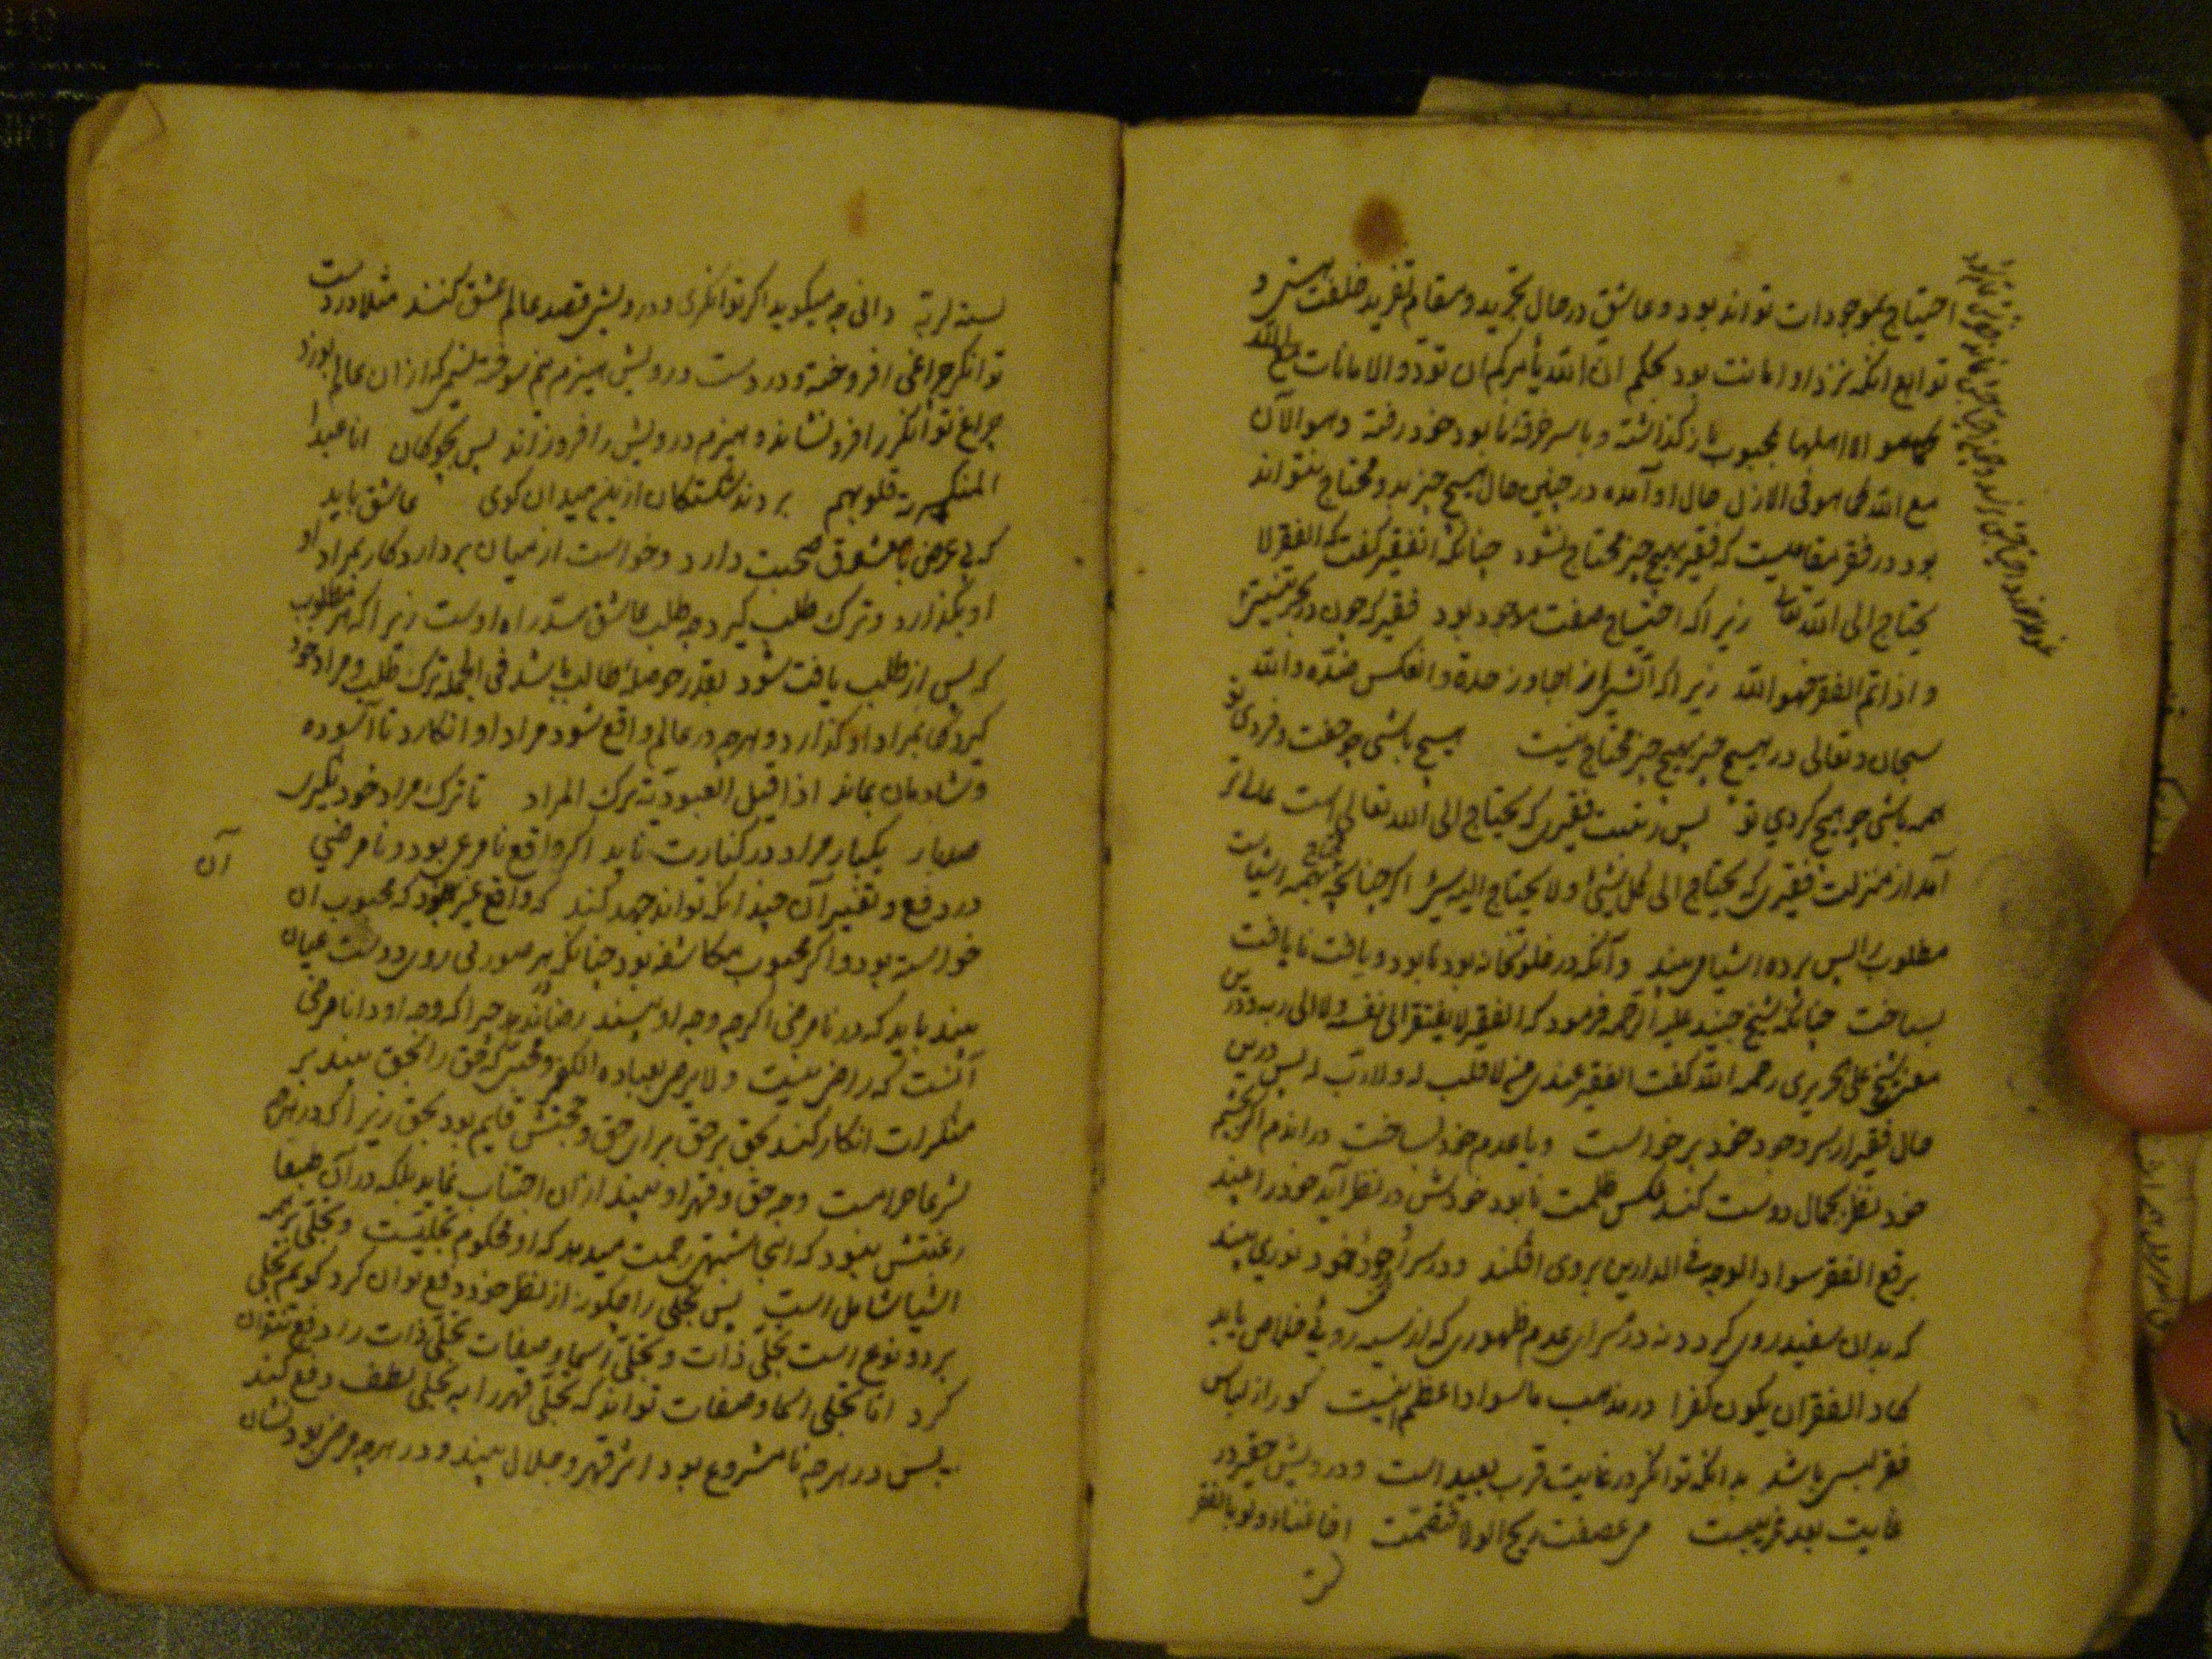 احتیاج بموجودات تواند بود و عاشق در حال تجرید و مقام تفرید خلعت هستی و
توابع آنکه نزد او امانت بود بحکم ان الله یأمرکم ان تؤدوا الامانات
الی اهلها بمحبوب باز گذاشته و با سر خرقه نابود خود رفته و هو الآن
مع الله کما هو فی الازل حال او آمده در چنین حال بهیچ چیز بدو محتاج نتواند
بود در فقر مقامیست که فقیر بهیچ چیز محتاج نشود چنانکه آن فقیر گفت که الفقیر لا
یحتاج الی الله تعالی زیرا که احتیاج صفت موجود بود فقیر که چون در بحر نیستی
و اذا تم الفقر فهو الله زیرا که الشیء اذا جاوز حده و انعکس ضده و الله
سبحانه و تعالی در هیچ چیز بهیچ چیز محتاج نیست هیچ باشی چو جفت و فردی تو
همه باشی چو هیچ کردی تو پس رتبت فقیری که یحتاج الی الله تعالی است عالی‌تر
آمد از منزلت فقیری که یحتاج الی کل شیء و لا یحتاج الیه شیء اگر چنانچه محتاج بهمه اشیاست
مطلوب را پس پرده اشیا می‌بیند و آنکه در خلوتخانه بود نابود و یافت نایافت
بساخت چنانکه شیخ جنید علیه الرحمه فرمود که الفقیر لا یفتقر الی نفسه و لا الی ربه و درین
معنی شیخ علی حریری رحمه الله گفت الفقیر عندی من لا قلب له و لا رب له پس درین
حال فقیر از سر وجود خود برخواست و با عدم خود بساخت در اندم اگر بچشم
خود نظر بجمال دوست کند عکس ظلمت نابود خودش در نظر آید خود را بیند
برقع الفقر سواد الوجه فی الدارین بروی افکند و در سرای وجود خود نوری نبیند
که بدان سفید روی گردد و نه در سرای عدم ظهوری که از سیه روئی خلاص یابد
کاد الفقر ان یکون کفرا در مذهب ما سواد اعظم اینست کو را ز لباس
فقر لبس باشد بدانکه توانگر در غایت قرب بعید است و درویش حقیر در
غایت بعد قریبست من عصفت ریح الولا قصمت اخا غناء ولو بالفقر
لستة لربه دانی چه میگوید اگر توانگری و درویشی قصد عالم عشق کنند مثلا در دست
توانگر چراغی افروخته و در دست درویش هیزم نیم سوخته نسیمی که از آن عالم بوزد
چراغ توانگر را فرو نشاند و هیزم درویش را افروزاند پس بچوگان انا عند
المنکسرة قلوبهم بردند شکستگان ازین میدان گوی عاشق باید
که بی غرض با معشوق صحبت دارد و خواست از میان بردارد و کار بمراد او
او بگذارد و ترک طلب گیرد چه طلب عاشق سد راه اوست زیرا که هر مطلوب
که پس از طلب یافت شود بقدر حوصلهٔ طالب باشد فی الجمله ترک طلب و مراد خود
گیرد کار بمراد او گذارد و هر چه در عالم واقع شود مراد او انگارد تا آسوده
و شادمان بماند اذا قیل العبودیة ترک المراد تا ترک مراد خود نگیری
صد بار یکبار مراد در کنارت ناید اگر واقع نامرعی بود و نامرضی
آن
در دفع و تغییر آن چندانکه تواند جهد کند که واقع غیر آن بود که محبوب آن
خواسته بود و اگر محبوب مکاشفه بود چنانکه در هر صورتی روی دوست عیان
بیند باید که در نامرضی اگر چه وجه او بیند رضا ندهد چرا که وجه او در نامرضی
آنست که راضی نیست و لا یرضی لعباده الکفر و محبی که حق را بحق بیند بر
منکرات انکار کند بحق بر حق برای حق و حجتش قایم بود بحق زیرا که در هر چه
شرعا حرامست وجه حق و قهر او بیند از آن اجتناب نماید بلکه در آن طبعا
رغبتش نبود که اینجا شبهتی زحمت میدهد که او محکوم تجلیست و تجلی بر همه
اشیا شامل است پس تجلی را چگونه از نظر خود دفع توان کرد گویم تجلی
بر دو نوع است تجلی ذات و تجلی اسما و صفات تجلی ذات را دفع نتوان
کرد اما تجلی اسما و صفات تواند که تجلی قهر را به تجلی لطف دفع کند
پس در هر چه نامشروع بود اثر قهر و جلال بیند و در هر چه مرضی بود نشان